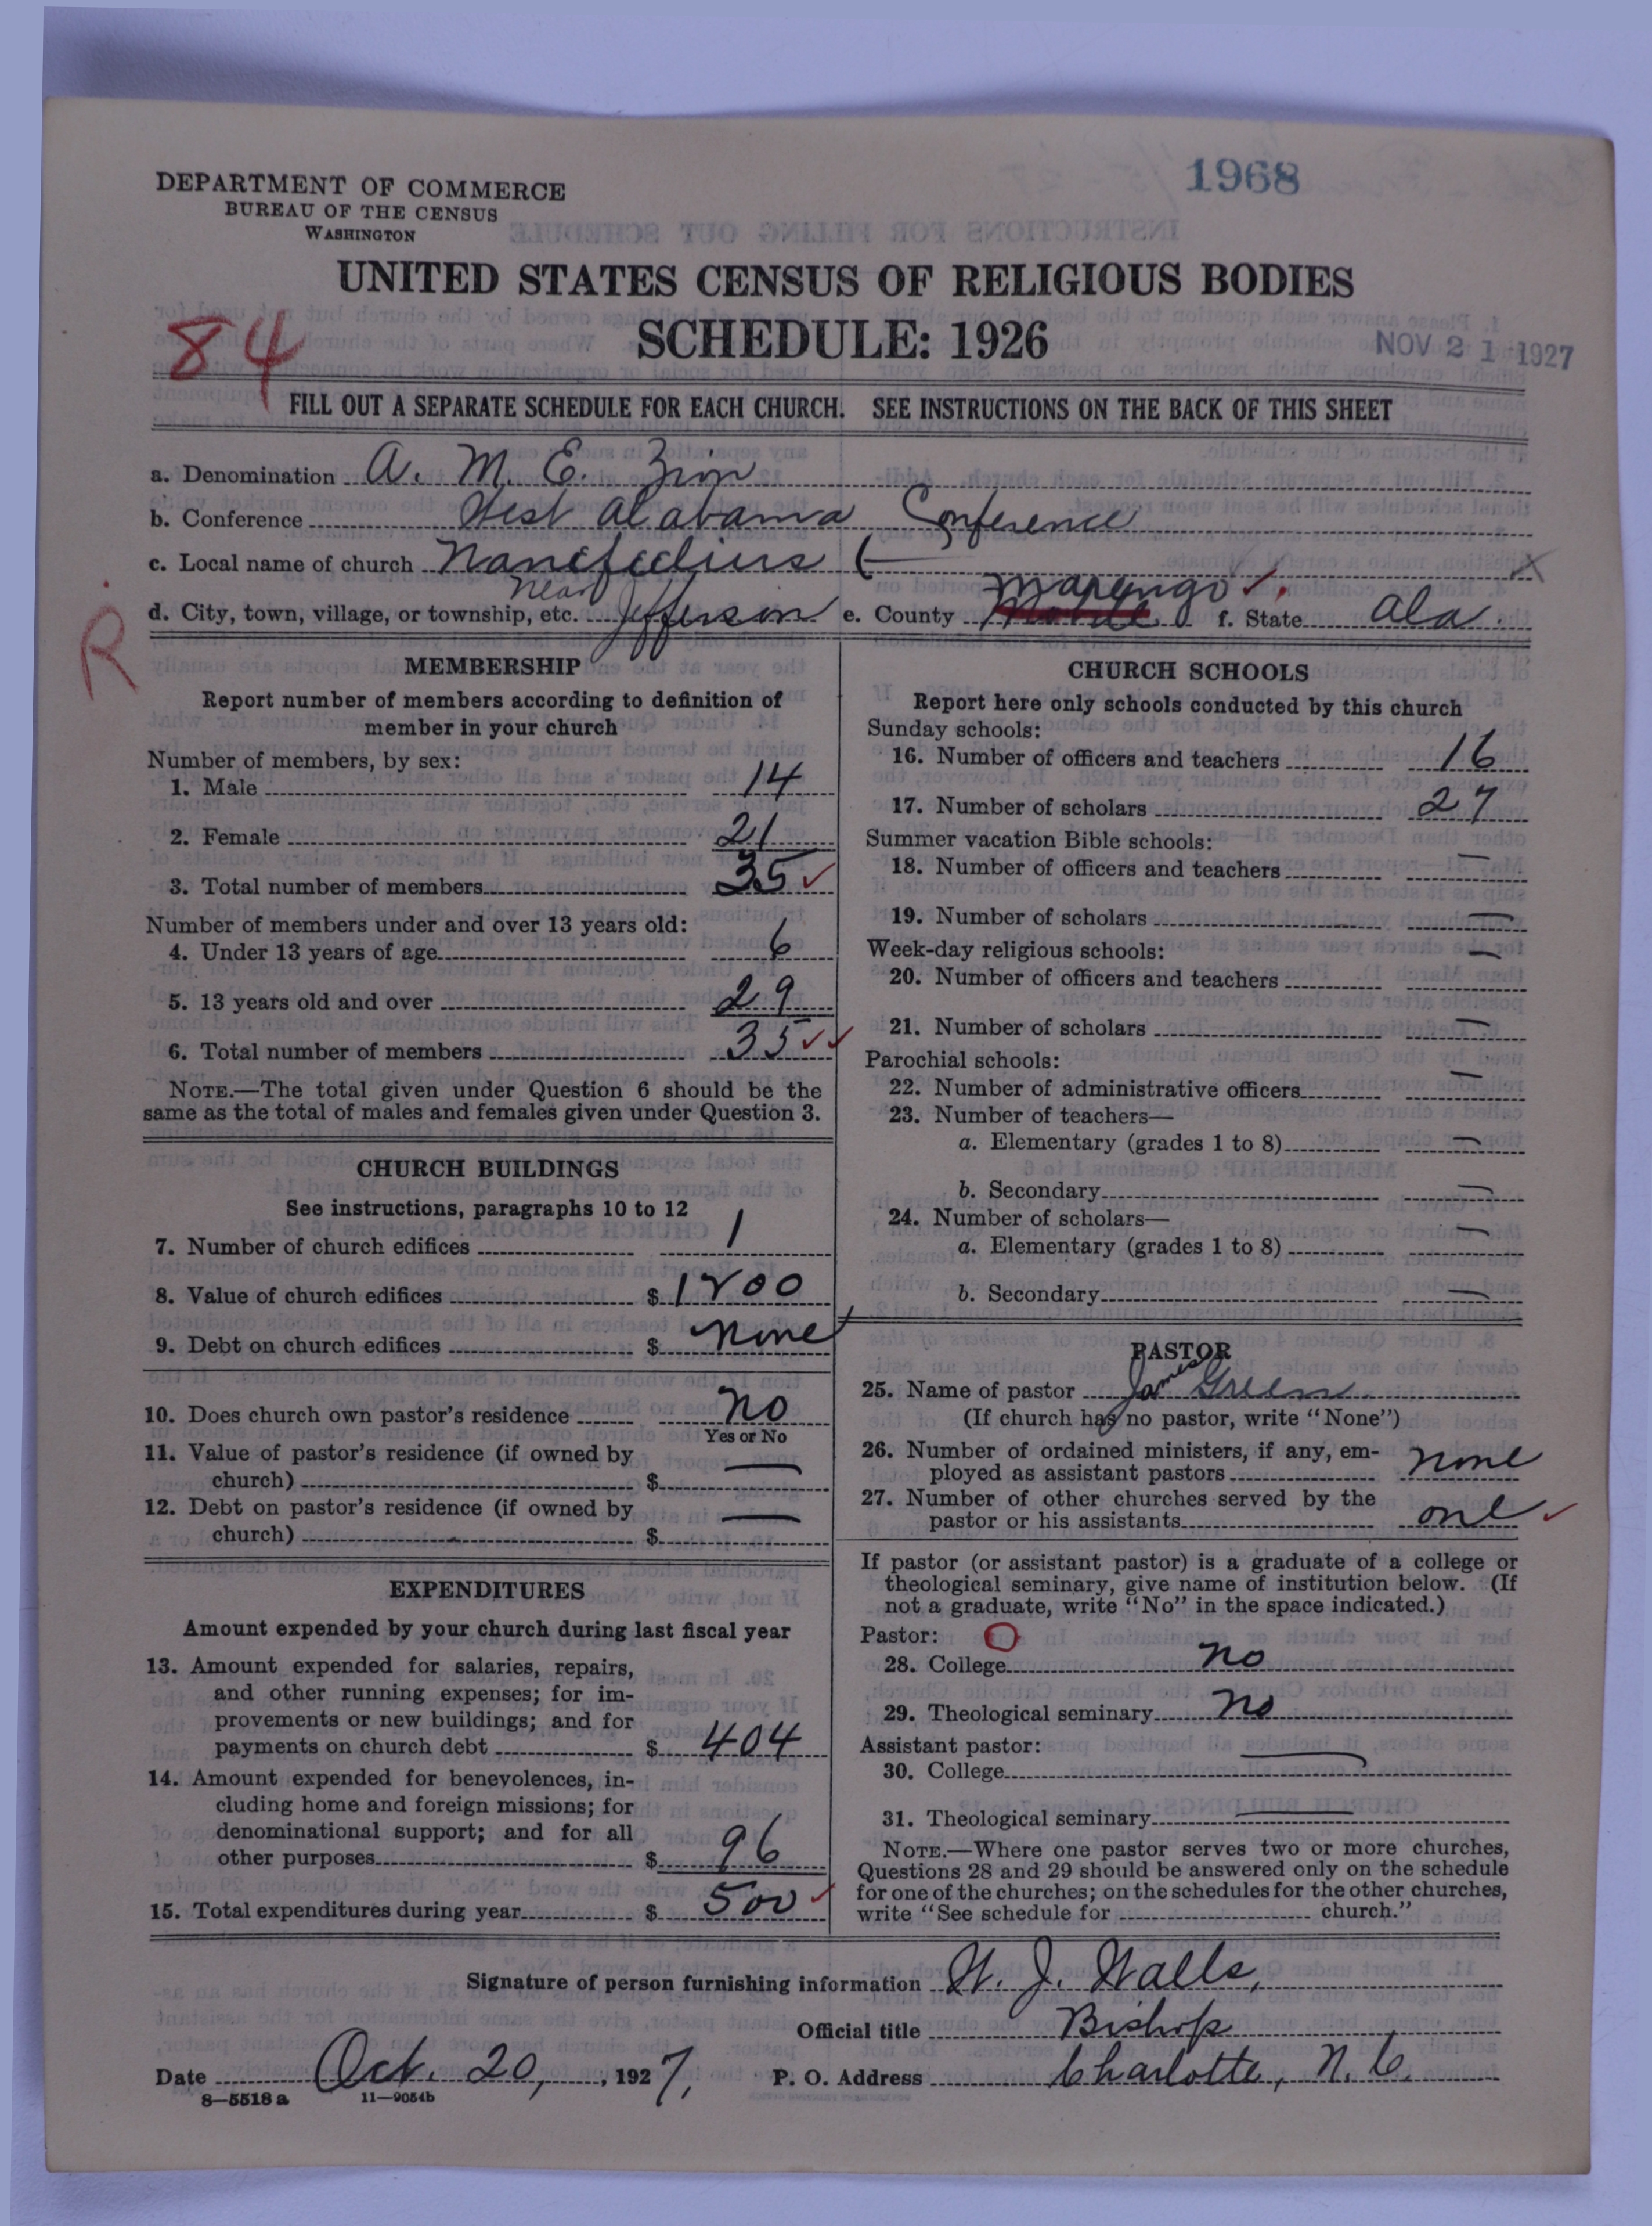 1968
DEPARTMENT OF COMMERCE
BUREAU OF THE CENSUS
WASHINGTON
UNITED STATES CENSUS OF RELIGIOUS BODIES
SCHEDULE: 1926
84
NOV 21 1927
FILL OUT A SEPARATE SCHEDULE FOR EACH CHURCH. SEE INSTRUCTIONS ON THE BACK OF THIS SHEET
a. Denomination A. M. E. Zion
b. Conference West Alabama Conference
c. Local name of church
d. City, town, village, or township, etc. near Jefferson e. County Marengo f. State Ala.
R
MEMBERSHIP
Report number of members according to definition of
member in your church
Number of members, by sex:
1. Male 14
2. Female 21
3. Total number of members 35
Number of members under and over 13 years old:
4. Under 13 years of age 6
5. 13 years old and over 29
6. Total number of members 35
NOTE.—The total given under Question 6 should be the
same as the total of males and females given under Question 3.
CHURCH BUILDINGS
See instructions, paragraphs 10 to 12
7. Number of church edifices 1
8. Value of church edifices $
9. Debt on church edifices $ none
10. Does church own pastor's residence no
Yes or No
11. Value of pastor's residence (if owned by
church) $ —
12. Debt on pastor's residence (if owned by
church) $ —
EXPENDITURES
Amount expended by your church during last fiscal year
13. Amount expended for salaries, repairs,
and other running expenses; for im-
provements or new buildings; and for
payments on church debt $ 404
14. Amount expended for benevolences, in-
cluding home and foreign missions; for
denominational support; and for all
other purposes $ 96
15. Total expenditures during year $ 500
CHURCH SCHOOLS
Report here only schools conducted by this church
Sunday schools:
16. Number of officers and teachers 16
17. Number of scholars 27
Summer vacation Bible schools:
18. Number of officers and teachers —
19. Number of scholars —
Week-day religious schools:
20. Number of officers and teachers —
21. Number of scholars —
Parochial schools:
22. Number of administrative officers —
23. Number of teachers—
a. Elementary (grades 1 to 8) —
b. Secondary —
24. Number of scholars—
a. Elementary (grades 1 to 8) —
b. Secondary —
PASTOR
25. Name of pastor James Green
(If church has no pastor, write "None")
26. Number of ordained ministers, if any, em-
ployed as assistant pastors none
27. Number of other churches served by the
pastor or his assistants one
If pastor (or assistant pastor) is a graduate of a college or
theological seminary, give name of institution below. (If
not a graduate, write "No" in the space indicated.)
Pastor: O
28. College no
29. Theological seminary no
Assistant pastor:
30. College —
31. Theological seminary —
NOTE.—Where one pastor serves two or more churches,
Questions 28 and 29 should be answered only on the schedule
for one of the churches; on the schedules for the other churches,
write "See schedule for church."
Signature of person furnishing information W. J. Walls,
Official title Bishop
Date Oct. 20, 1927, P. O. Address Charlotte, N. C.
8—5518 a 11—9054b